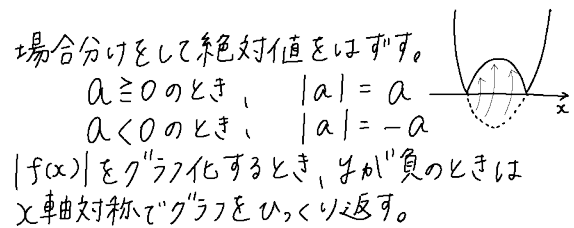 場合分けをして絶対値をはずす。
a≧0のとき、 |a| = a
a<0のとき、 |a| = -a
x
|f(x)|をグラフ化するとき、yが負のときは
x軸対称でグラフをひっくり返す。